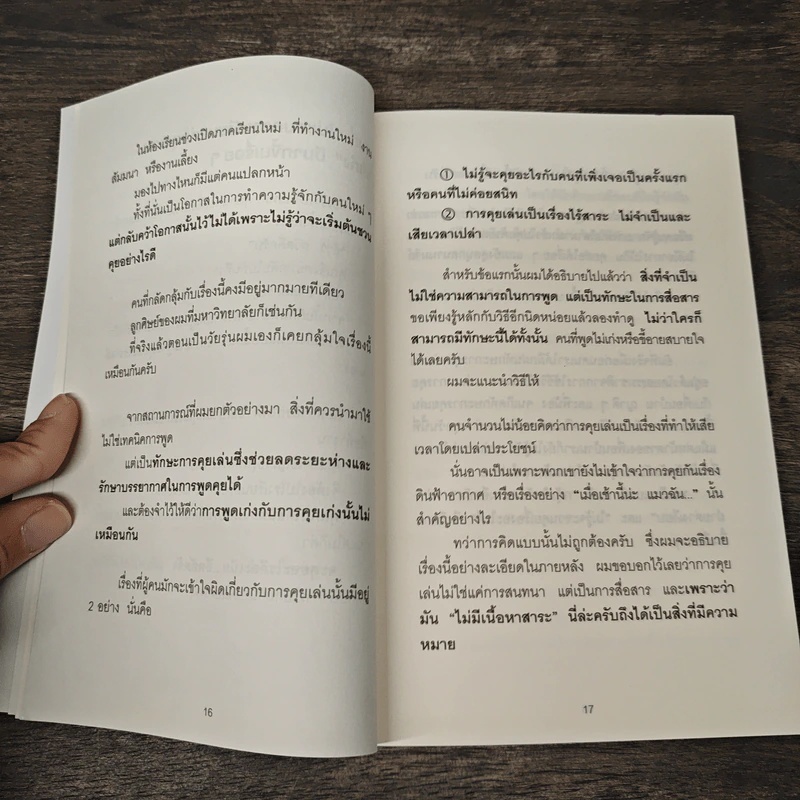 ในห้องเรียนช่วงเปิดภาคเรียนใหม่ ที่ทำงานใหม่ งาน
สัมมนา หรืองานเลี้ยง
มองไปทางไหนก็มีแต่คนแปลกหน้า
ทั้งที่นั่นเป็นโอกาสในการทำความรู้จักกับคนใหม่ ๆ
แต่กลับคว้าโอกาสนั้นไว้ไม่ได้เพราะไม่รู้ว่าจะเริ่มต้นชวน
คุยอย่างไรดี
คนที่กลัดกลุ้มกับเรื่องนี้คงมีอยู่มากมายทีเดียว
ลูกศิษย์ของผมที่มหาวิทยาลัยก็เช่นกัน
ที่จริงแล้วตอนเป็นวัยรุ่นผมเองก็เคยกลุ้มใจเรื่องนี้
เหมือนกันครับ
จากสถานการณ์ที่ผมยกตัวอย่างมา สิ่งที่ควรนำมาใช้
ไม่ใช่เทคนิคการพูด
แต่เป็นทักษะการคุยเล่นซึ่งช่วยลดระยะห่างและ
รักษาบรรยากาศในการพูดคุยได้
และต้องจำไว้ให้ดีว่าการพูดเก่งกับการคุยเก่งนั้นไม่
เหมือนกัน
เรื่องที่ผู้คนมักจะเข้าใจผิดเกี่ยวกับการคุยเล่นนั้นมีอยู่
2 อย่าง นั่นคือ
16
① ไม่รู้จะคุยอะไรกับคนที่เพิ่งเจอเป็นครั้งแรก
หรือคนที่ไม่ค่อยสนิท
② การคุยเล่นเป็นเรื่องไร้สาระ ไม่จำเป็นและ
เสียเวลาเปล่า
สำหรับข้อแรกนั้นผมได้อธิบายไปแล้วว่า สิ่งที่จำเป็น
ไม่ใช่ความสามารถในการพูด แต่เป็นทักษะในการสื่อสาร
ขอเพียงรู้หลักกับวิธีอีกนิดหน่อยแล้วลองทำดู ไม่ว่าใครก็
สามารถมีทักษะนี้ได้ทั้งนั้น คนที่พูดไม่เก่งหรือขี้อายสบายใจ
ได้เลยครับ
ผมจะแนะนำวิธีให้
คนจำนวนไม่น้อยคิดว่าการคุยเล่นเป็นเรื่องที่ทำให้เสีย
เวลาโดยเปล่าประโยชน์
นั่นอาจเป็นเพราะพวกเขายังไม่เข้าใจว่าการคุยกันเรื่อง
ดินฟ้าอากาศ หรือเรื่องอย่าง “เมื่อเช้านี้น่ะ แมวฉัน...” นั้น
สำคัญอย่างไร
ทว่าการคิดแบบนั้นไม่ถูกต้องครับ ซึ่งผมจะอธิบาย
เรื่องนี้อย่างละเอียดในภายหลัง ผมขอบอกไว้เลยว่าการคุย
เล่นไม่ใช่แค่การสนทนา แต่เป็นการสื่อสาร และเพราะว่า
มัน “ไม่มีเนื้อหาสาระ” นี่ล่ะครับถึงได้เป็นสิ่งที่มีความ
หมาย
17